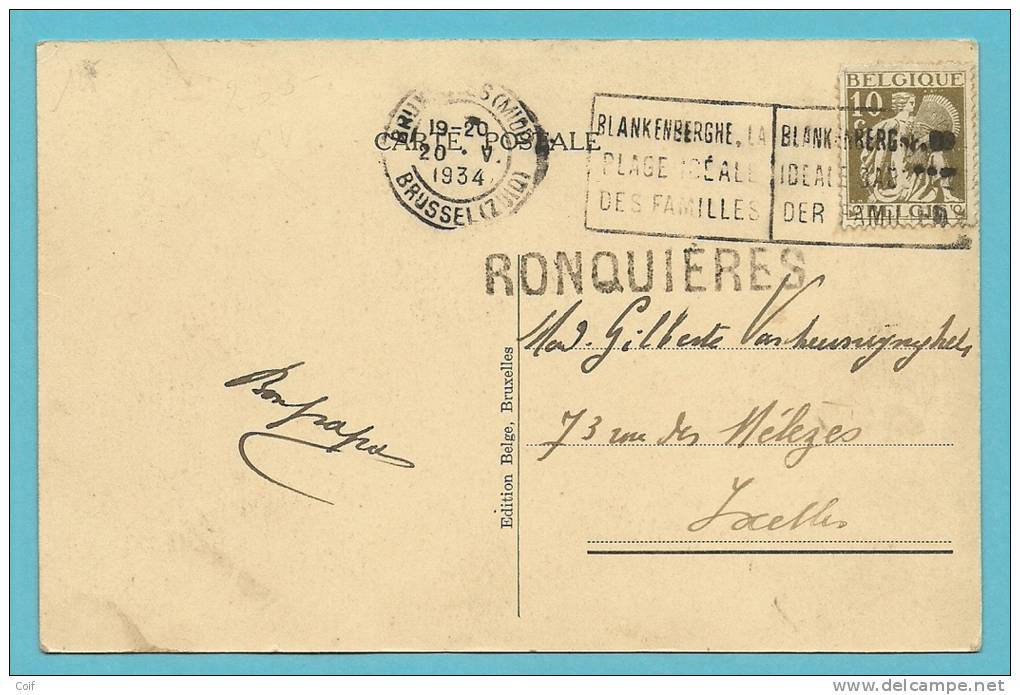 BRUXELLES (MIDI)
19-20
20 V.
1934
BRUSSEL (ZUID)
CARTE POSTALE
BLANKENBERGHE, LA
PLAGE IDÉALE
DES FAMILLES
BLANKENBERGHE
IDEALE BAD
DER FAMILIEN
BELGIQUE
10
C
BELGIE
RONQUIÈRES
Mad. Gilberte
73 rue des Mélèzes
Ixelles
Bon papa
Edition Belge, Bruxelles
Coif
www.delcampe.net